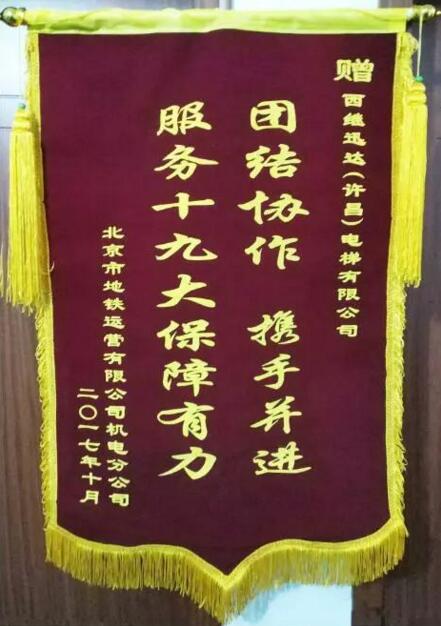 赠
西继迅达(许昌)电梯有限公司
团结协作 携手并进
服务十九大保障有力
北京市地铁运营有限公司机电分公司
二〇一七年十月